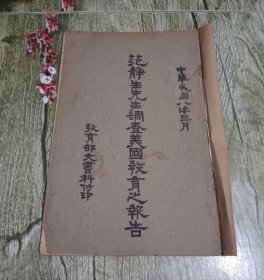 中華民國八年三月
范靜生先生調查美國教育之報告
教育部文書科付印